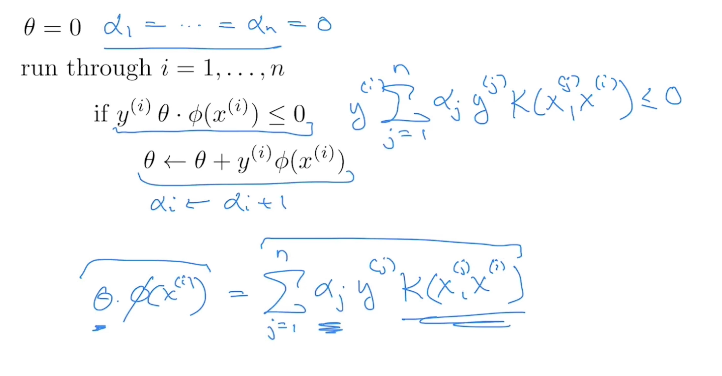 θ = 0 α₁ = ⋯ = αₙ = 0
run through i = 1, . . . , n
if y⁽ⁱ⁾ θ · ϕ(x⁽ⁱ⁾) ≤ 0 y⁽ⁱ⁾ ∑ⁿⱼ₌₁ αⱼ y⁽ʲ⁾ K(x⁽ʲ⁾, x⁽ⁱ⁾) ≤ 0
θ ← θ + y⁽ⁱ⁾ϕ(x⁽ⁱ⁾)
αᵢ ← αᵢ + 1
θ · ϕ(x⁽ⁱ⁾) = ∑ⁿⱼ₌₁ αⱼ y⁽ʲ⁾ K(x⁽ʲ⁾, x⁽ⁱ⁾)